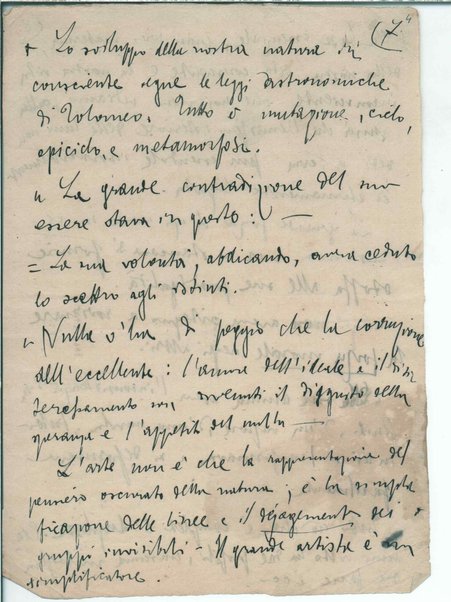 (7
+ Lo sviluppo della nostra natura in
cosciente segue le leggi astronomiche
di Tolomeo. Tutto è mutazione, ciclo,
epiciclo, e metamorfosi.
" La grande contradizione del suo
essere stava in questo: —
= La sua volontà, abdicando, aveva ceduto
lo scettro agli istinti.
Nulla v'ha di peggio che la corruzione
dell'eccellente: l'amore dell'ideale e il disin
teressamento son divenuti il disgusto della
speranza e l'appetito del nulla —
L'arte non è che la rappresentazione del
pensiero oscurato della natura; è la sempli
ficazione delle linee e il dei
gruppi invisibili - Il grande artista è un
semplificatore